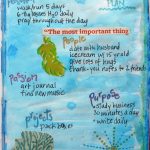 PLAN
walk/run 5 days
6-8 glasses H2O daily
pray throughout the day
"The most important thing
People
date with husband
ice cream w/
Give lots of hugs
thank-you notes to 2 friends
Passion
art journal
find new music
Purpose
study business
30 minutes a day
write daily
Projects
pack boxes